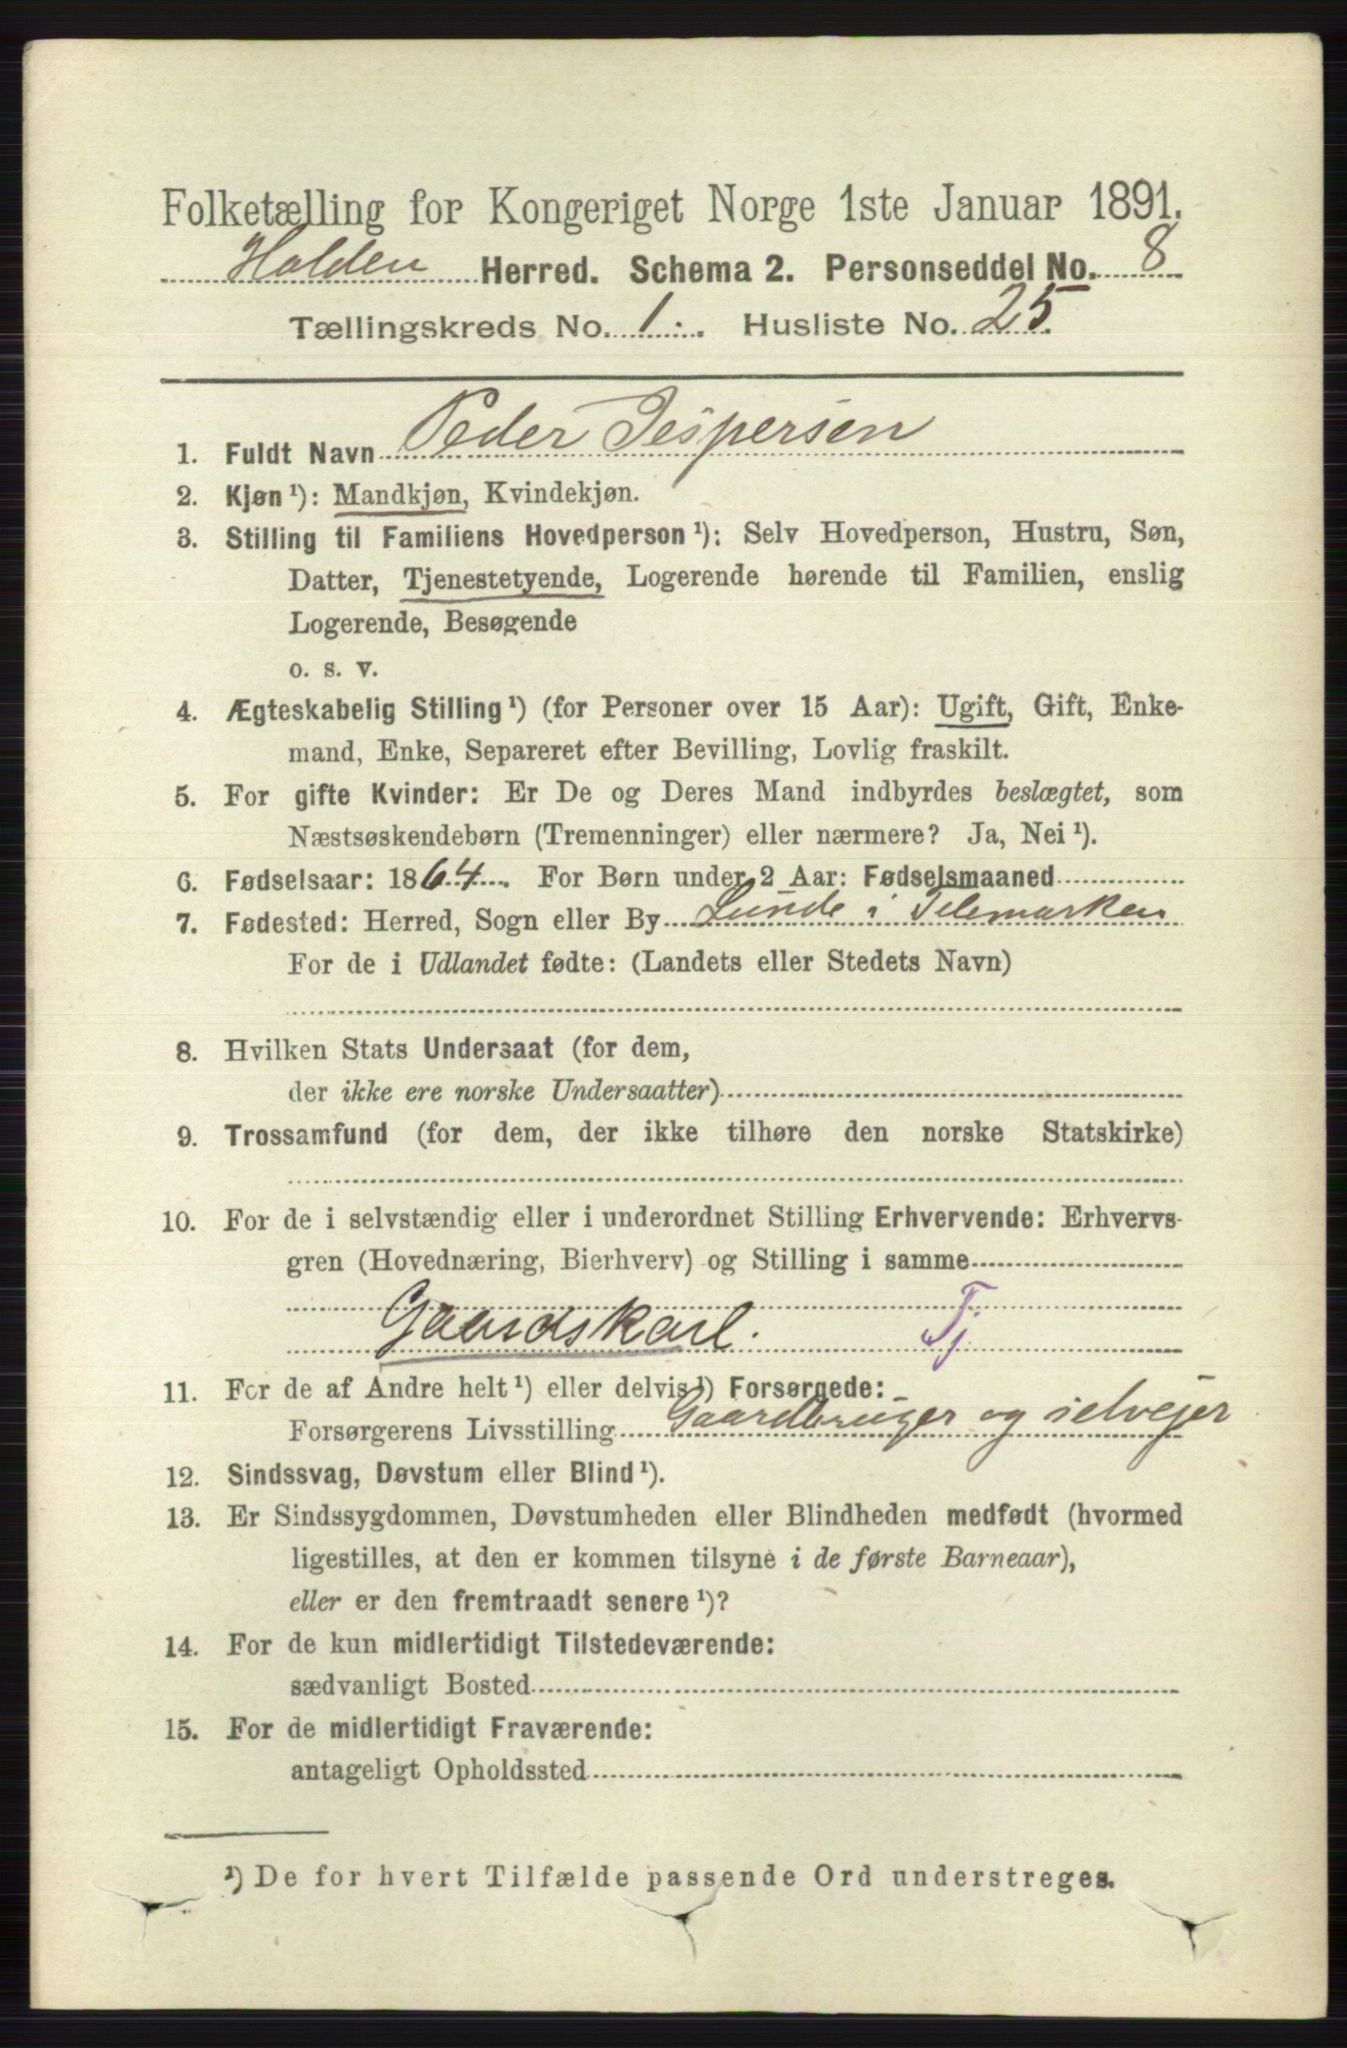 Folketælling for Kongeriget Norge 1ste Januar 1891.
Holden Herred. Schema 2. Personseddel No. 8
Tællingskreds No. 1. Husliste No. 25.
1. Fuldt Navn Peder Jespersen
2. Kjøn¹): Mandkjøn, Kvindekjøn.
3. Stilling til Familiens Hovedperson¹): Selv Hovedperson, Hustru, Søn,
Datter, Tjenestetyende, Logerende hørende til Familien, enslig
Logerende, Besøgende
o. s. v.
4. Ægteskabelig Stilling¹) (for Personer over 15 Aar): Ugift, Gift, Enke-
mand, Enke, Separeret efter Bevilling, Lovlig fraskilt.
5. For gifte Kvinder: Er De og Deres Mand indbyrdes beslægtet, som
Næstsøskendebørn (Tremenninger) eller nærmere? Ja, Nei¹).
6. Fødselsaar: 1864. For Børn under 2 Aar: Fødselsmaaned
7. Fødested: Herred, Sogn eller By Lunde i Telemarken
For de i Udlandet fødte: (Landets eller Stedets Navn)
8. Hvilken Stats Undersaat (for dem,
der ikke ere norske Undersaatter)
9. Trossamfund (for dem, der ikke tilhøre den norske Statskirke)
10. For de i selvstændig eller i underordnet Stilling Erhvervende: Erhvervs-
gren (Hovednæring, Bierhverv) og Stilling i samme
Gaardskarl. Tj.
11. For de af Andre helt¹) eller delvis¹) Forsørgede:
Forsørgerens Livsstilling Gaardbruger og selvejer
12. Sindssvag, Døvstum eller Blind¹).
13. Er Sindssygdommen, Døvstumheden eller Blindheden medfødt (hvormed
ligestilles, at den er kommen tilsyne i de første Barneaar),
eller er den fremtraadt senere¹)?
14. For de kun midlertidigt Tilstedeværende:
sædvanligt Bosted
15. For de midlertidigt Fraværende:
antageligt Opholdssted
¹) De for hvert Tilfælde passende Ord understreges.